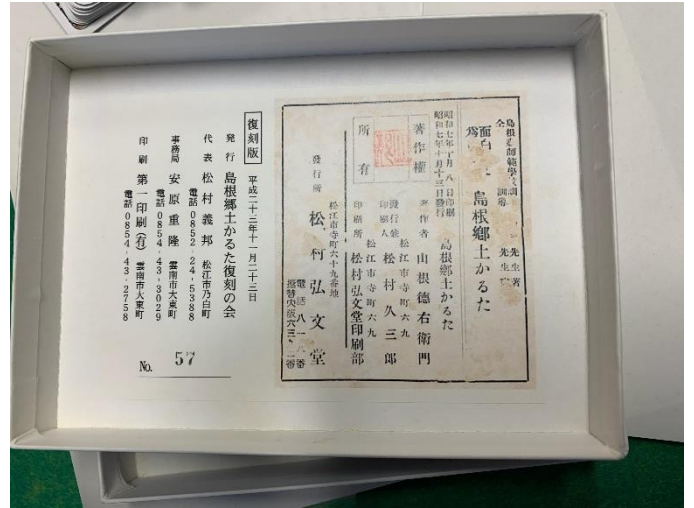 島根縣師範學校訓導
先生著
仝
訓導
先生
島根郷土かるた
昭和七年十月八日印刷
昭和七年十月十三日發行
島根郷土かるた
著作權
所有
著作者 山根德右衛門
松江市寺町六九
發行兼
印刷人 松村久三郎
松江市寺町六九
印刷所 松村弘文堂印刷部
松江市寺町六十九番地
發行所 松村弘文堂
電話八一八番
復刻版
平成二十三年十一月二十三日
発行 島根郷土かるた復刻の会
代表 松村義邦 松江市乃白町
電話0852-24-5388
事務局 安原重隆 雲南市大東町
電話0854-43-3029
印刷 第一印刷(有) 雲南市大東町
電話0854-43-2758
No. 57